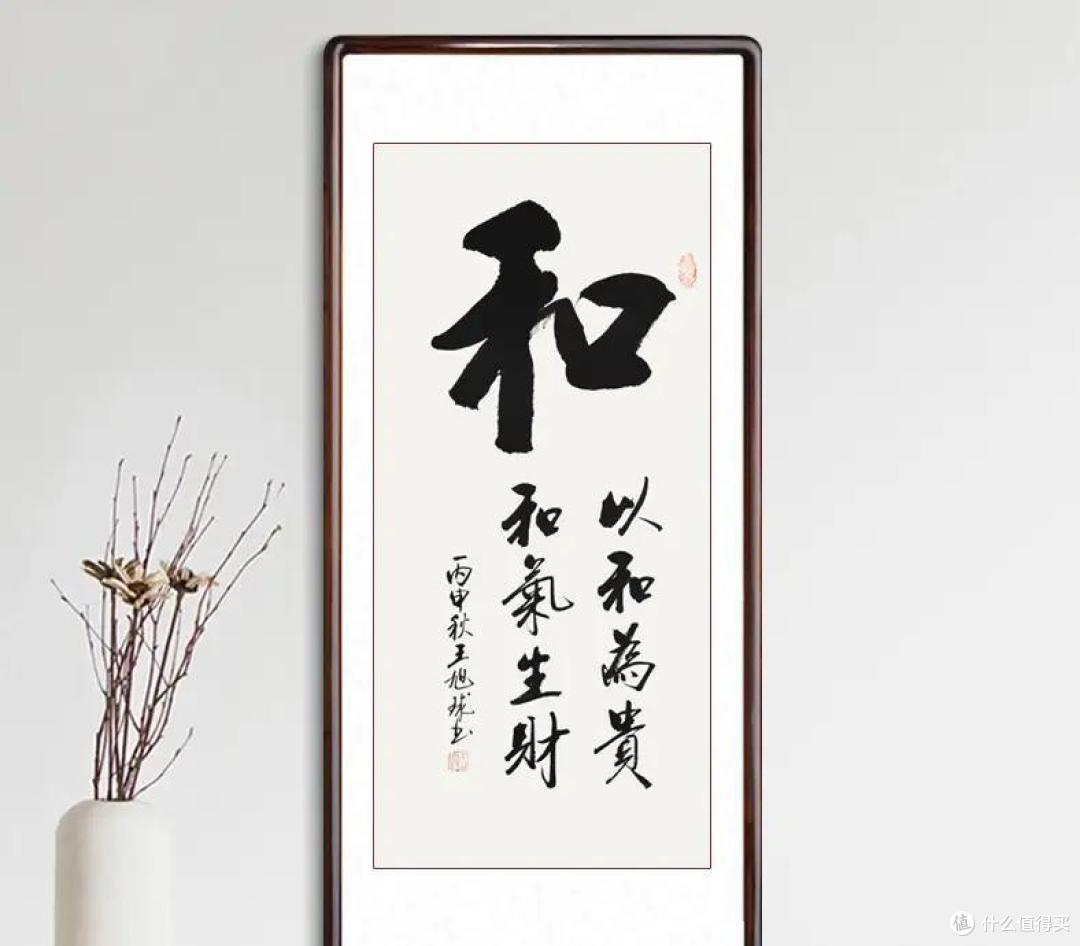 和
以和為貴
和氣生財
丙申秋王旭球书
值 什么值得买